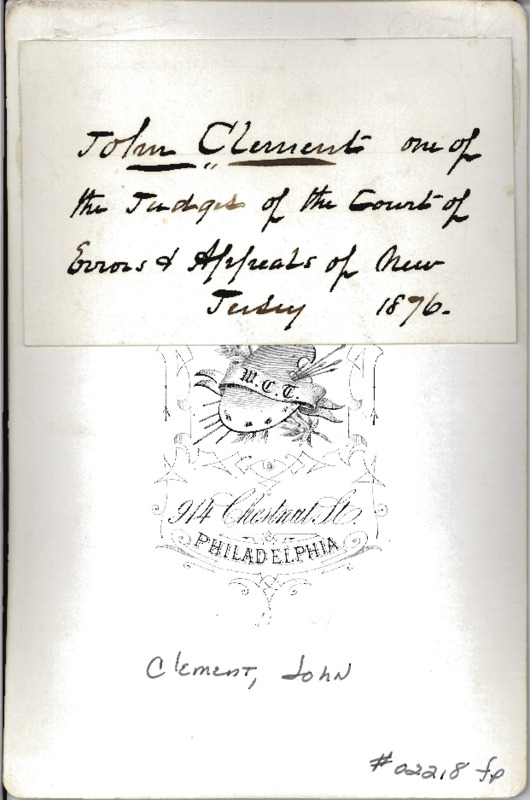 John Clement one of
the Judges of the Court of
Errors & Appeals of New
Jersey 1876.
W.C.T.
914 Chestnut St.
PHILADELPHIA
Clement, John
#02218 fp